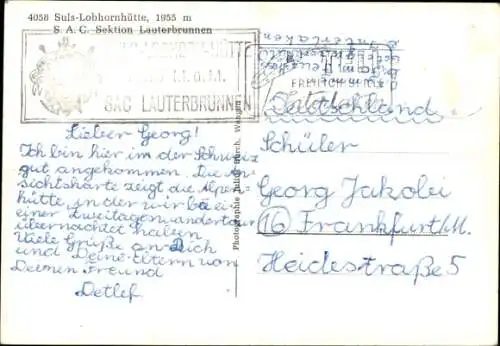 4058 Suls-Lobhornhütte, 1955 m
S. A. C. Sektion Lauterbrunnen
LOBHORNHÜTTE
SAC LAUTERBRUNNEN
Lieber Georg!
Ich bin hier in der Schweiz
gut angekommen. Die An-
sichtskarte zeigt die Alpen-
hütte, in der wir bei
einer Zweitagewandertour
übernachtet haben
Viele Grüße an Dich
und Deine Eltern von
Deinem Freund
Detlef.
Photographie
Deutschland
Schüler
Georg Jakobi
16 Frankfurt/M.
Heidestraße 5